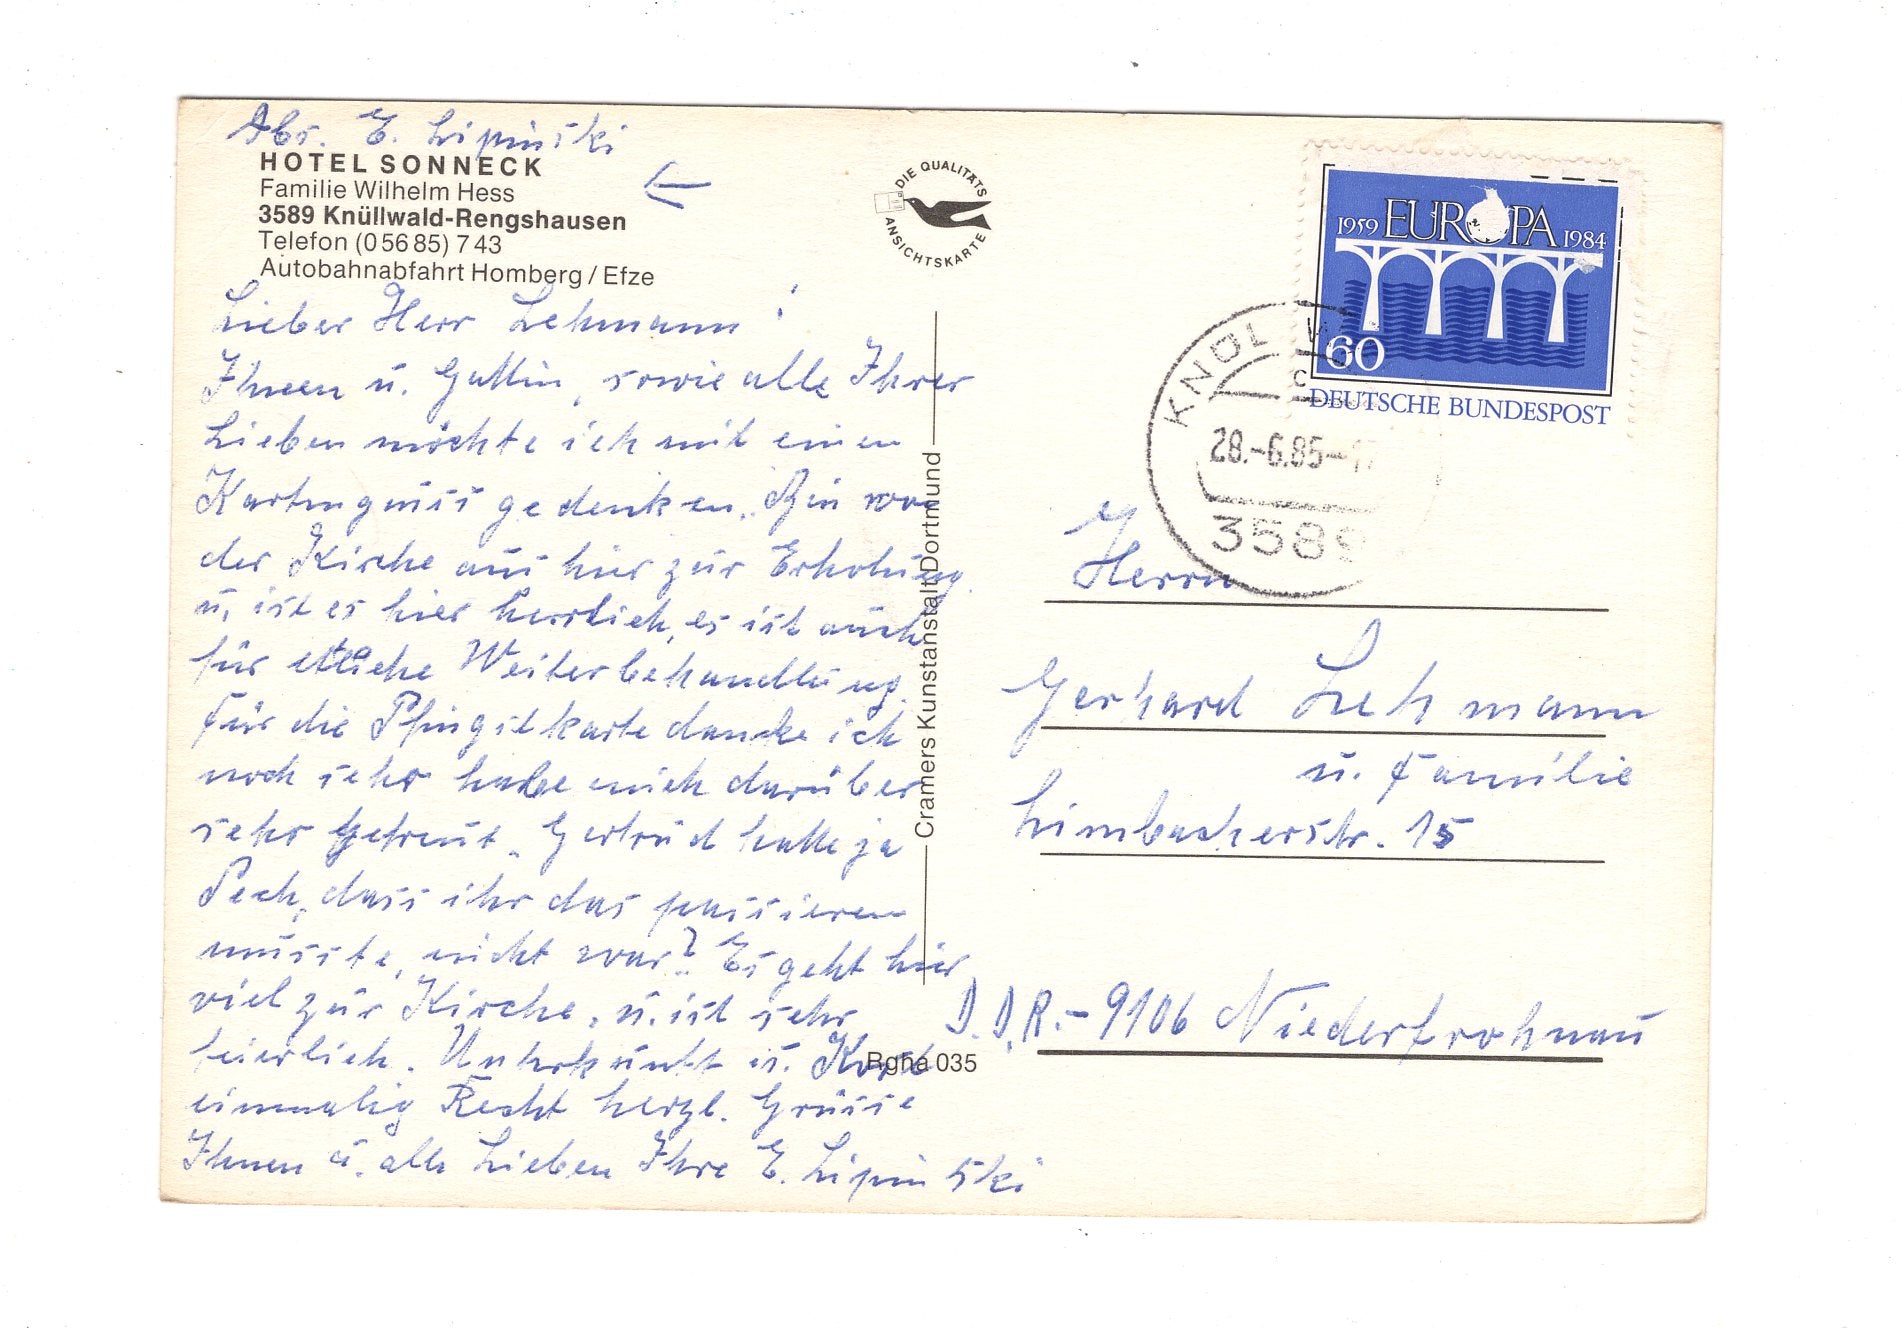 Abs. E. Lipinski
HOTEL SONNECK
Familie Wilhelm Hess
3589 Knüllwald-Rengshausen
Telefon (0 56 85) 7 43
Autobahnabfahrt Homberg / Efze
Lieber Herr Lehmann!
Ihnen u. Gattin, sowie alle Ihrer
Lieben möchte ich mit einen
Kartengruss gedenken. Bin von
der Kirche aus hier zur Erholung
u. ist es hier herrlich, es ist auch
für etliche Weiterbehandlung.
Für die Pfingstkarte danke ich
noch sehr habe mich darüber
sehr gefreut. Gertrud hatte ja
Pech, dass ihr das passieren
musste, nicht war? Es geht hier
viel zur Kirche, u. ist sehr
feierlich. Unterkunft u. Kost
einmalig Recht herzl. Grüsse
Ihnen u. alle Lieben Ihre E. Lipinski
DIE QUALITÄTS
ANSICHTSKARTE
Cramers Kunstanstalt Dortmund
Bgha 035
1959 EUROPA 1984
60
DEUTSCHE BUNDESPOST
KNÜLLW
28.-6.85-17
3589
Herrn
Gerhard Lehmann
u. Familie
Limbacherstr. 15
D.D.R.-9106 Niederfrohnau